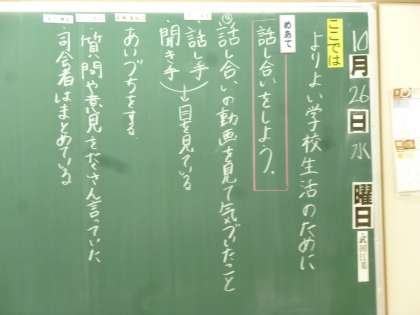 10月26日水曜日
ここでは
よりよい学校生活のために
めあて
話し合いをしよう。
話し合いの動画を見て気づいたこと
話し手
聞き手
→目を見ている
あいづちをする。
質問や意見をたくさん言っていた
・司会者はまとめている